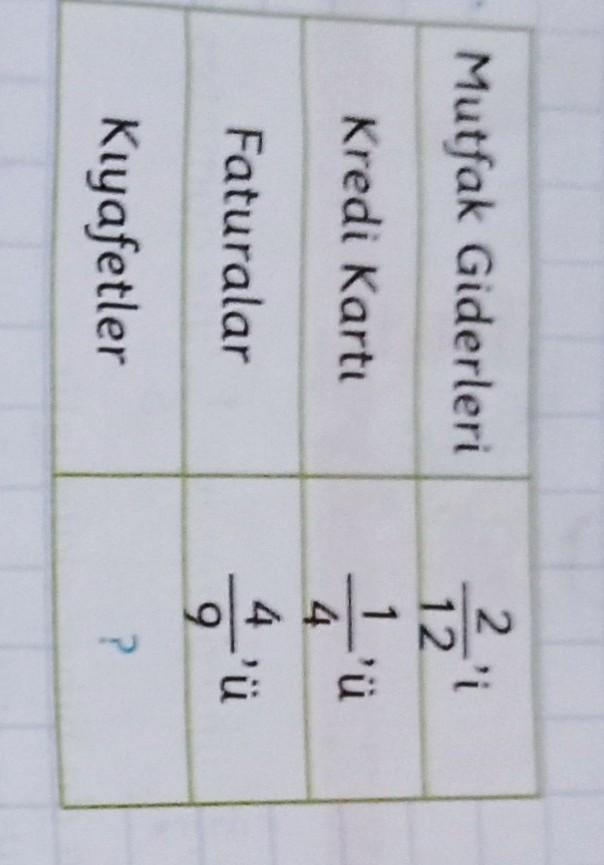 Mutfak Giderleri 2/12'i
Kredi Kartı 1/4'ü
Faturalar 4/9'ü
Kıyafetler ?